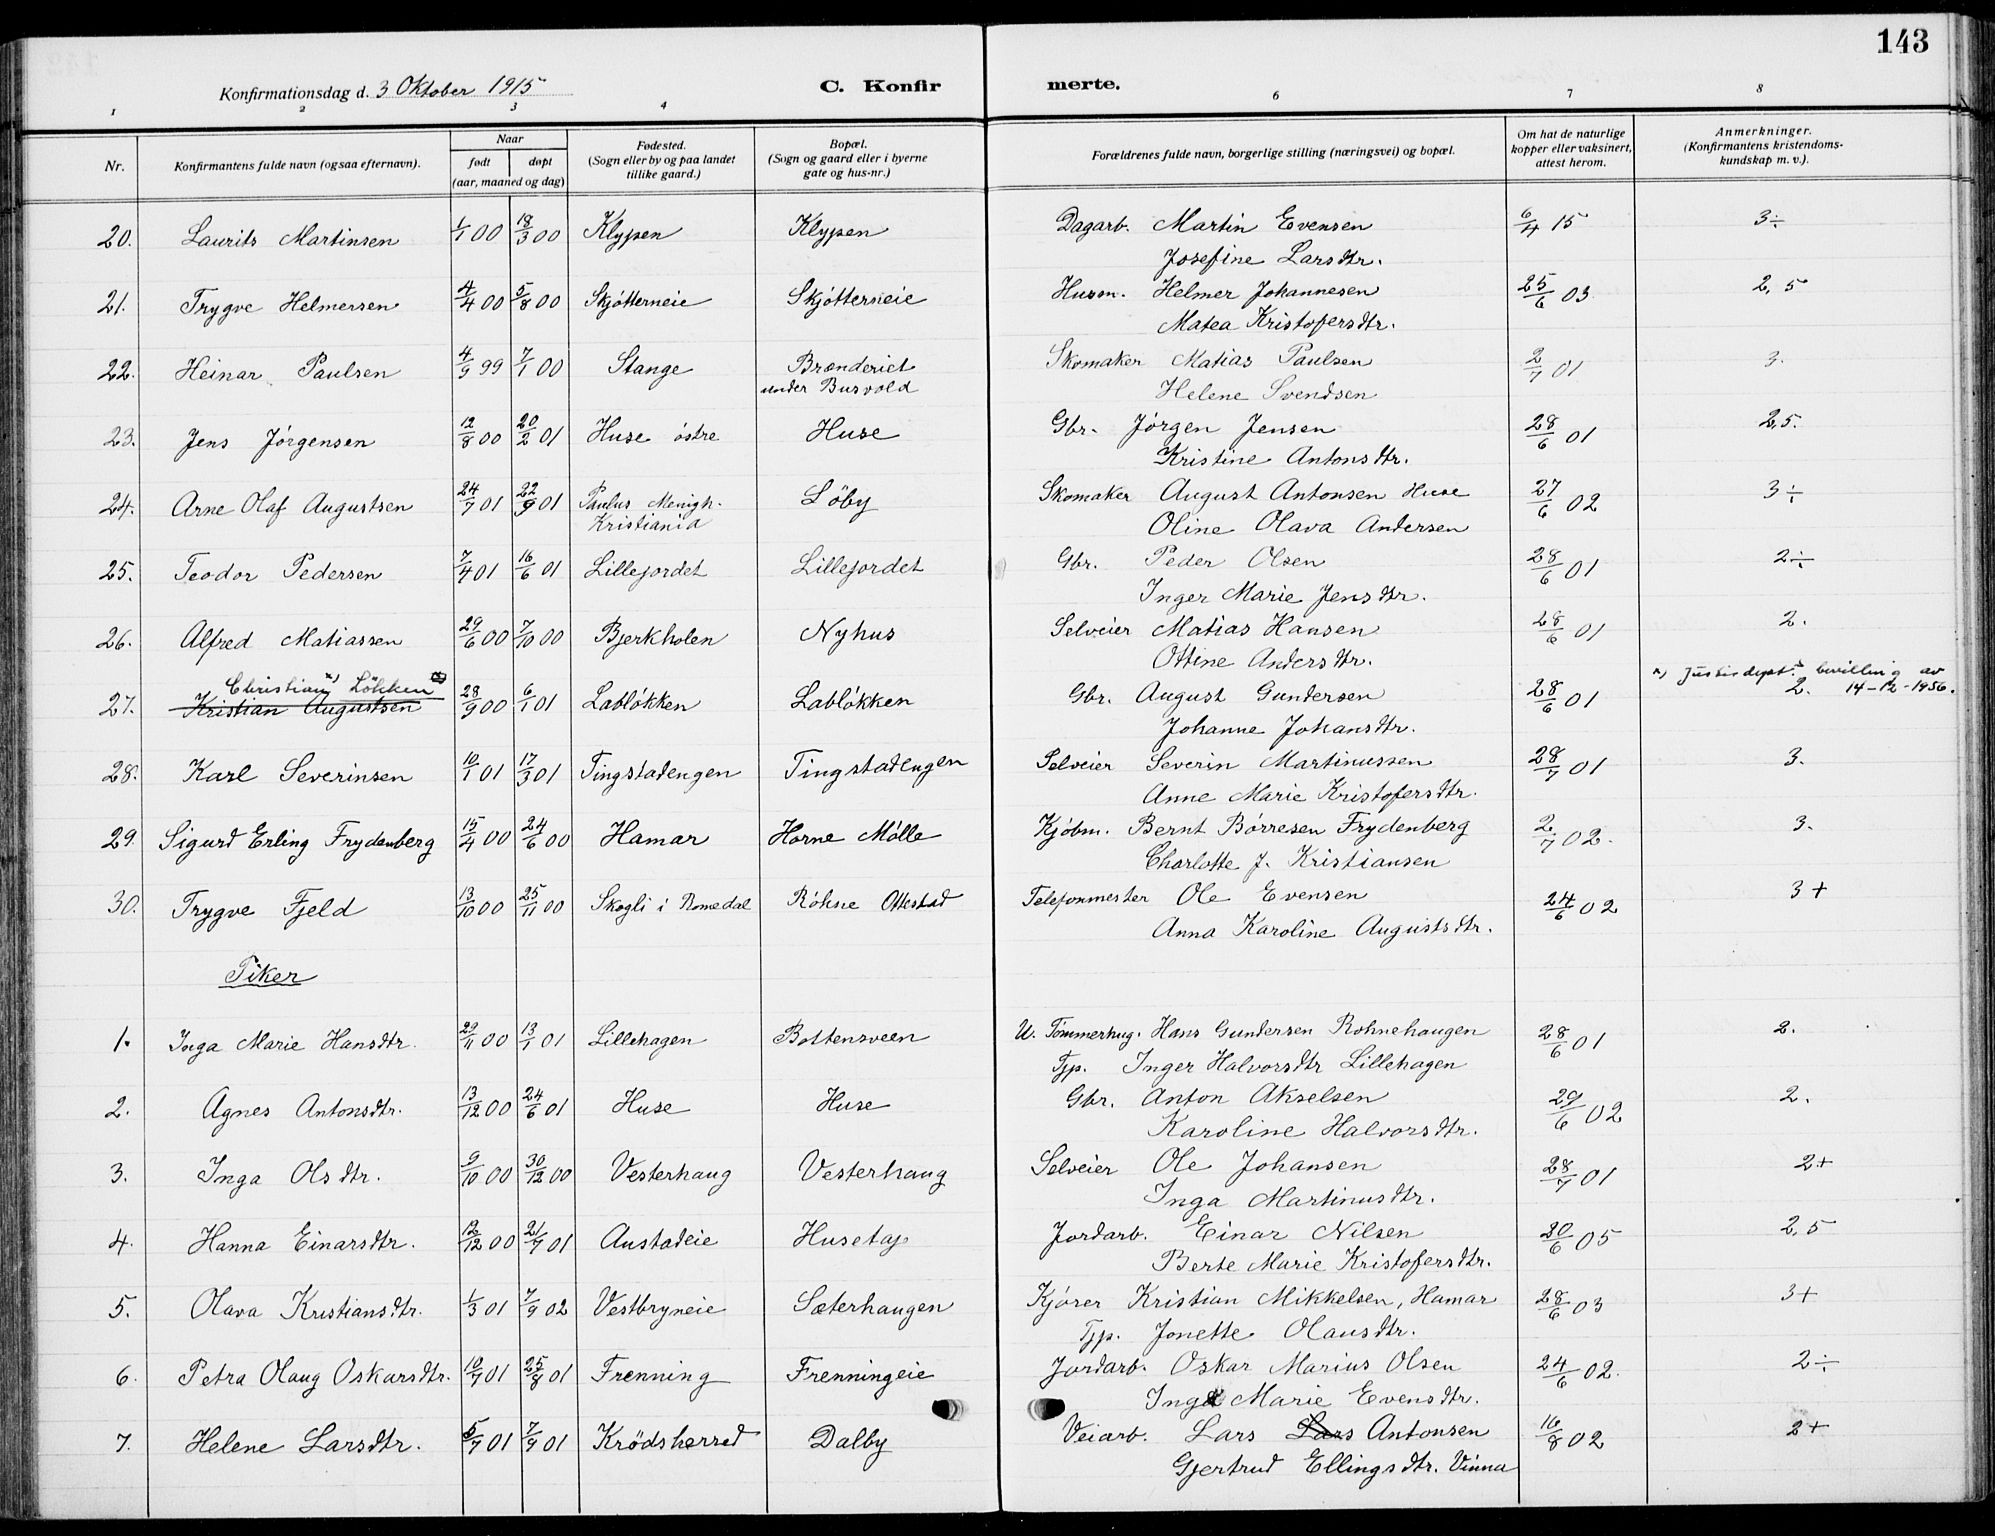 143
Konfirmationsdag d. 3 Oktober 1915
C. Konfir merte.
1 2 3 4 6 7 8
Nr. Konfirmantens fulde navn (ogsaa efternavn). Naar født døpt (aar, maaned og dag) Fødested. (Sogn eller by og paa landet tillike gaard.) Bopæl. (Sogn og gaard eller i byerne gate og hus-nr.) Forældrenes fulde navn, borgerlige stilling (næringsvei) og bopæl. Om hat de naturlige kopper eller vaksinert, attest herom. Anmerkninger. (Konfirmantens kristendoms-kundskap m. v.).
20. Laurits Martinsen 1/1 00 18/3 00 Klypen Klypen Dagarb. Martin Evensen 6/4 15 3÷
Josefine Larsdtr.
21. Trygve Helmersen 4/4 00 5/8 00 Skjøtterneie Skjøtterneie Husm. Helmer Johannesen 25/6 03 2,5
Matea Kristofersdtr.
22. Heinar Paulsen 4/9 99 7/1 00 Stange Brænderiet Skomaker Matias Paulsen 2/7 01 3.
under Busvold Helene Svendsen
23. Jens Jørgensen 12/8 00 20/2 01 Huse østre Huse Gbr. Jørgen Jensen 28/6 01 2,5.
Kristine Antonsdtr.
24. Arne Olaf Augustsen 24/7 01 22/9 01 Paulus Menigh. Løby Skomaker August Antonsen Huse 27/6 02 3÷
Kristiania Oline Olava Andersen
25. Teodor Pedersen 7/4 01 16/6 01 Lillejordet Lillejordet Gbr. Peder Olsen 28/6 01 2÷
Inger Marie Jensdtr.
26. Alfred Matiassen 29/6 00 7/10 00 Bjerkholen Nyhus Selveier Matias Hansen 28/6 01 2.
Ottine Andersdtr.
Christian x) Løkken x) Justisdept.s bevilling av 14-12-1956.
27. Kristian Augustsen 28/9 00 6/1 01 Labløkken Labløkken Gbr. August Gundersen 28/6 01 2.
Johanne Johansdtr.
28. Karl Severinsen 10/1 01 17/3 01 Tingstadengen Tingstadengen Selveier Severin Martinussen 28/7 01 3.
Anne Marie Kristofersdtr.
29. Sigurd Erling Frydenberg 15/4 00 24/6 00 Hamar Horne Mølle Kjøbm. Bernt Børresen Frydenberg 2/7 02. 3.
Charlotte J. Kristiansen
30. Trygve Fjeld 13/10 00 25/11 00 Skogli i Romedal Røhne Ottestad Telefonmester Ole Evensen 24/6 02 3+
Anna Karoline Augustsdtr.
Piker
1. Inga Marie Hansdtr. 29/11 00 13/1 01 Lillehagen Bottensveen U. Tømmerhug. Hans Gundersen Rohnehaugen 28/6 01 2.
Tjp. Inger Halvorsdtr Lillehagen
2. Agnes Antonsdtr. 13/12 00 24/6 01 Huse Huse Gbr. Anton Akselsen 29/6 02 2.
Karoline Halvorsdtr.
3. Inga Olsdtr. 9/10 00 30/12 00 Vesterhaug Vesterhaug Selveier Ole Johansen 28/7 01 2+
Inga Martinusdtr.
4. Hanna Einarsdtr. 12/12 00 21/7 01 Austadeie Husetaj Jordarb. Einar Nilsen 30/6 05 2,5
Berte Marie Kristofersdtr.
5. Olava Kristiansdtr. 1/3 01 7/9 02 Vestbryneie Sæterhaugen Kjører Kristian Mikkelsen, Hamar 28/6 03 3+
Tjp. Jonette Olausdtr.
6. Petra Olaug Oskarsdtr. 10/7 01 25/8 01 Frenning Frenningeie Jordarb. Oskar Marius Olsen 24/6 02. 2÷
Inga Marie Evensdtr.
7. Helene Larsdtr. 5/7 01 7/9 01 Krödsherred Dalby Veiarb. Lars Lars Antonsen 16/8 02 2+
Gjertrud Ellingsdtr. Vinna